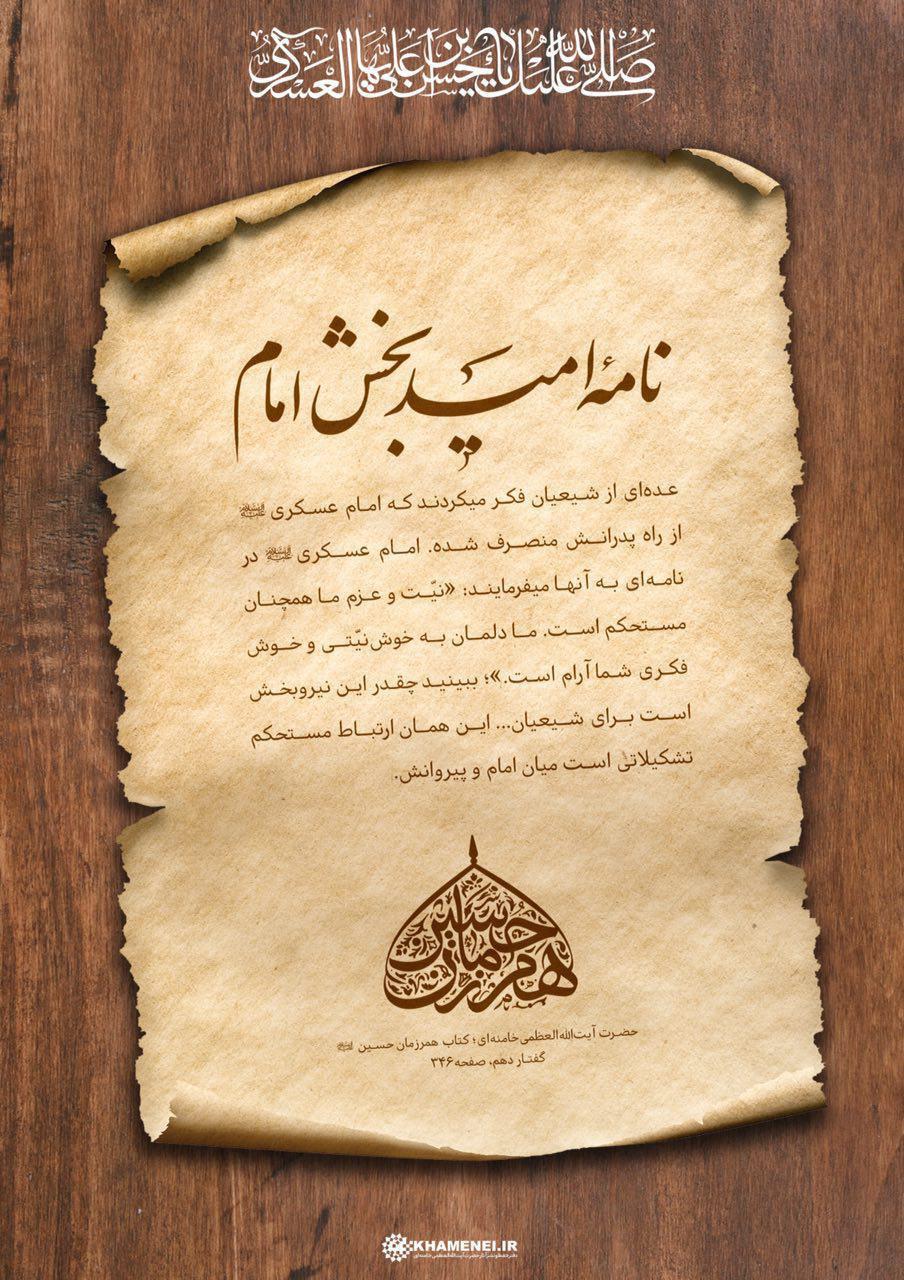 صَلَّى اللهُ عَلَيْكَ يا حَسَنَ بْنَ عَلِيٍّ أَيُّهَا الْعَسْكَرِيُّ
نامهٔ امیدبخش امام
عده‌ای از شیعیان فکر میکردند که امام عسکری علیه‌السلام
از راه پدرانش منصرف شده. امام عسکری علیه‌السلام در
نامه‌ای به آنها میفرمایند: «نیّت و عزم ما همچنان
مستحکم است. ما دلمان به خوش‌نیّتی و خوش
فکری شما آرام است.»؛ ببینید چقدر این نیروبخش
است برای شیعیان... این همان ارتباط مستحکم
تشکیلاتی است میان امام و پیروانش.
همرزمان حسین
حضرت آیت‌الله‌العظمی خامنه‌ای؛ کتاب همرزمان حسین علیه‌السلام
گفتار دهم، صفحه ۳۴۶
KHAMENEI.IR
دفتر حفظ و نشر آثار حضرت آیت‌الله‌العظمی خامنه‌ای